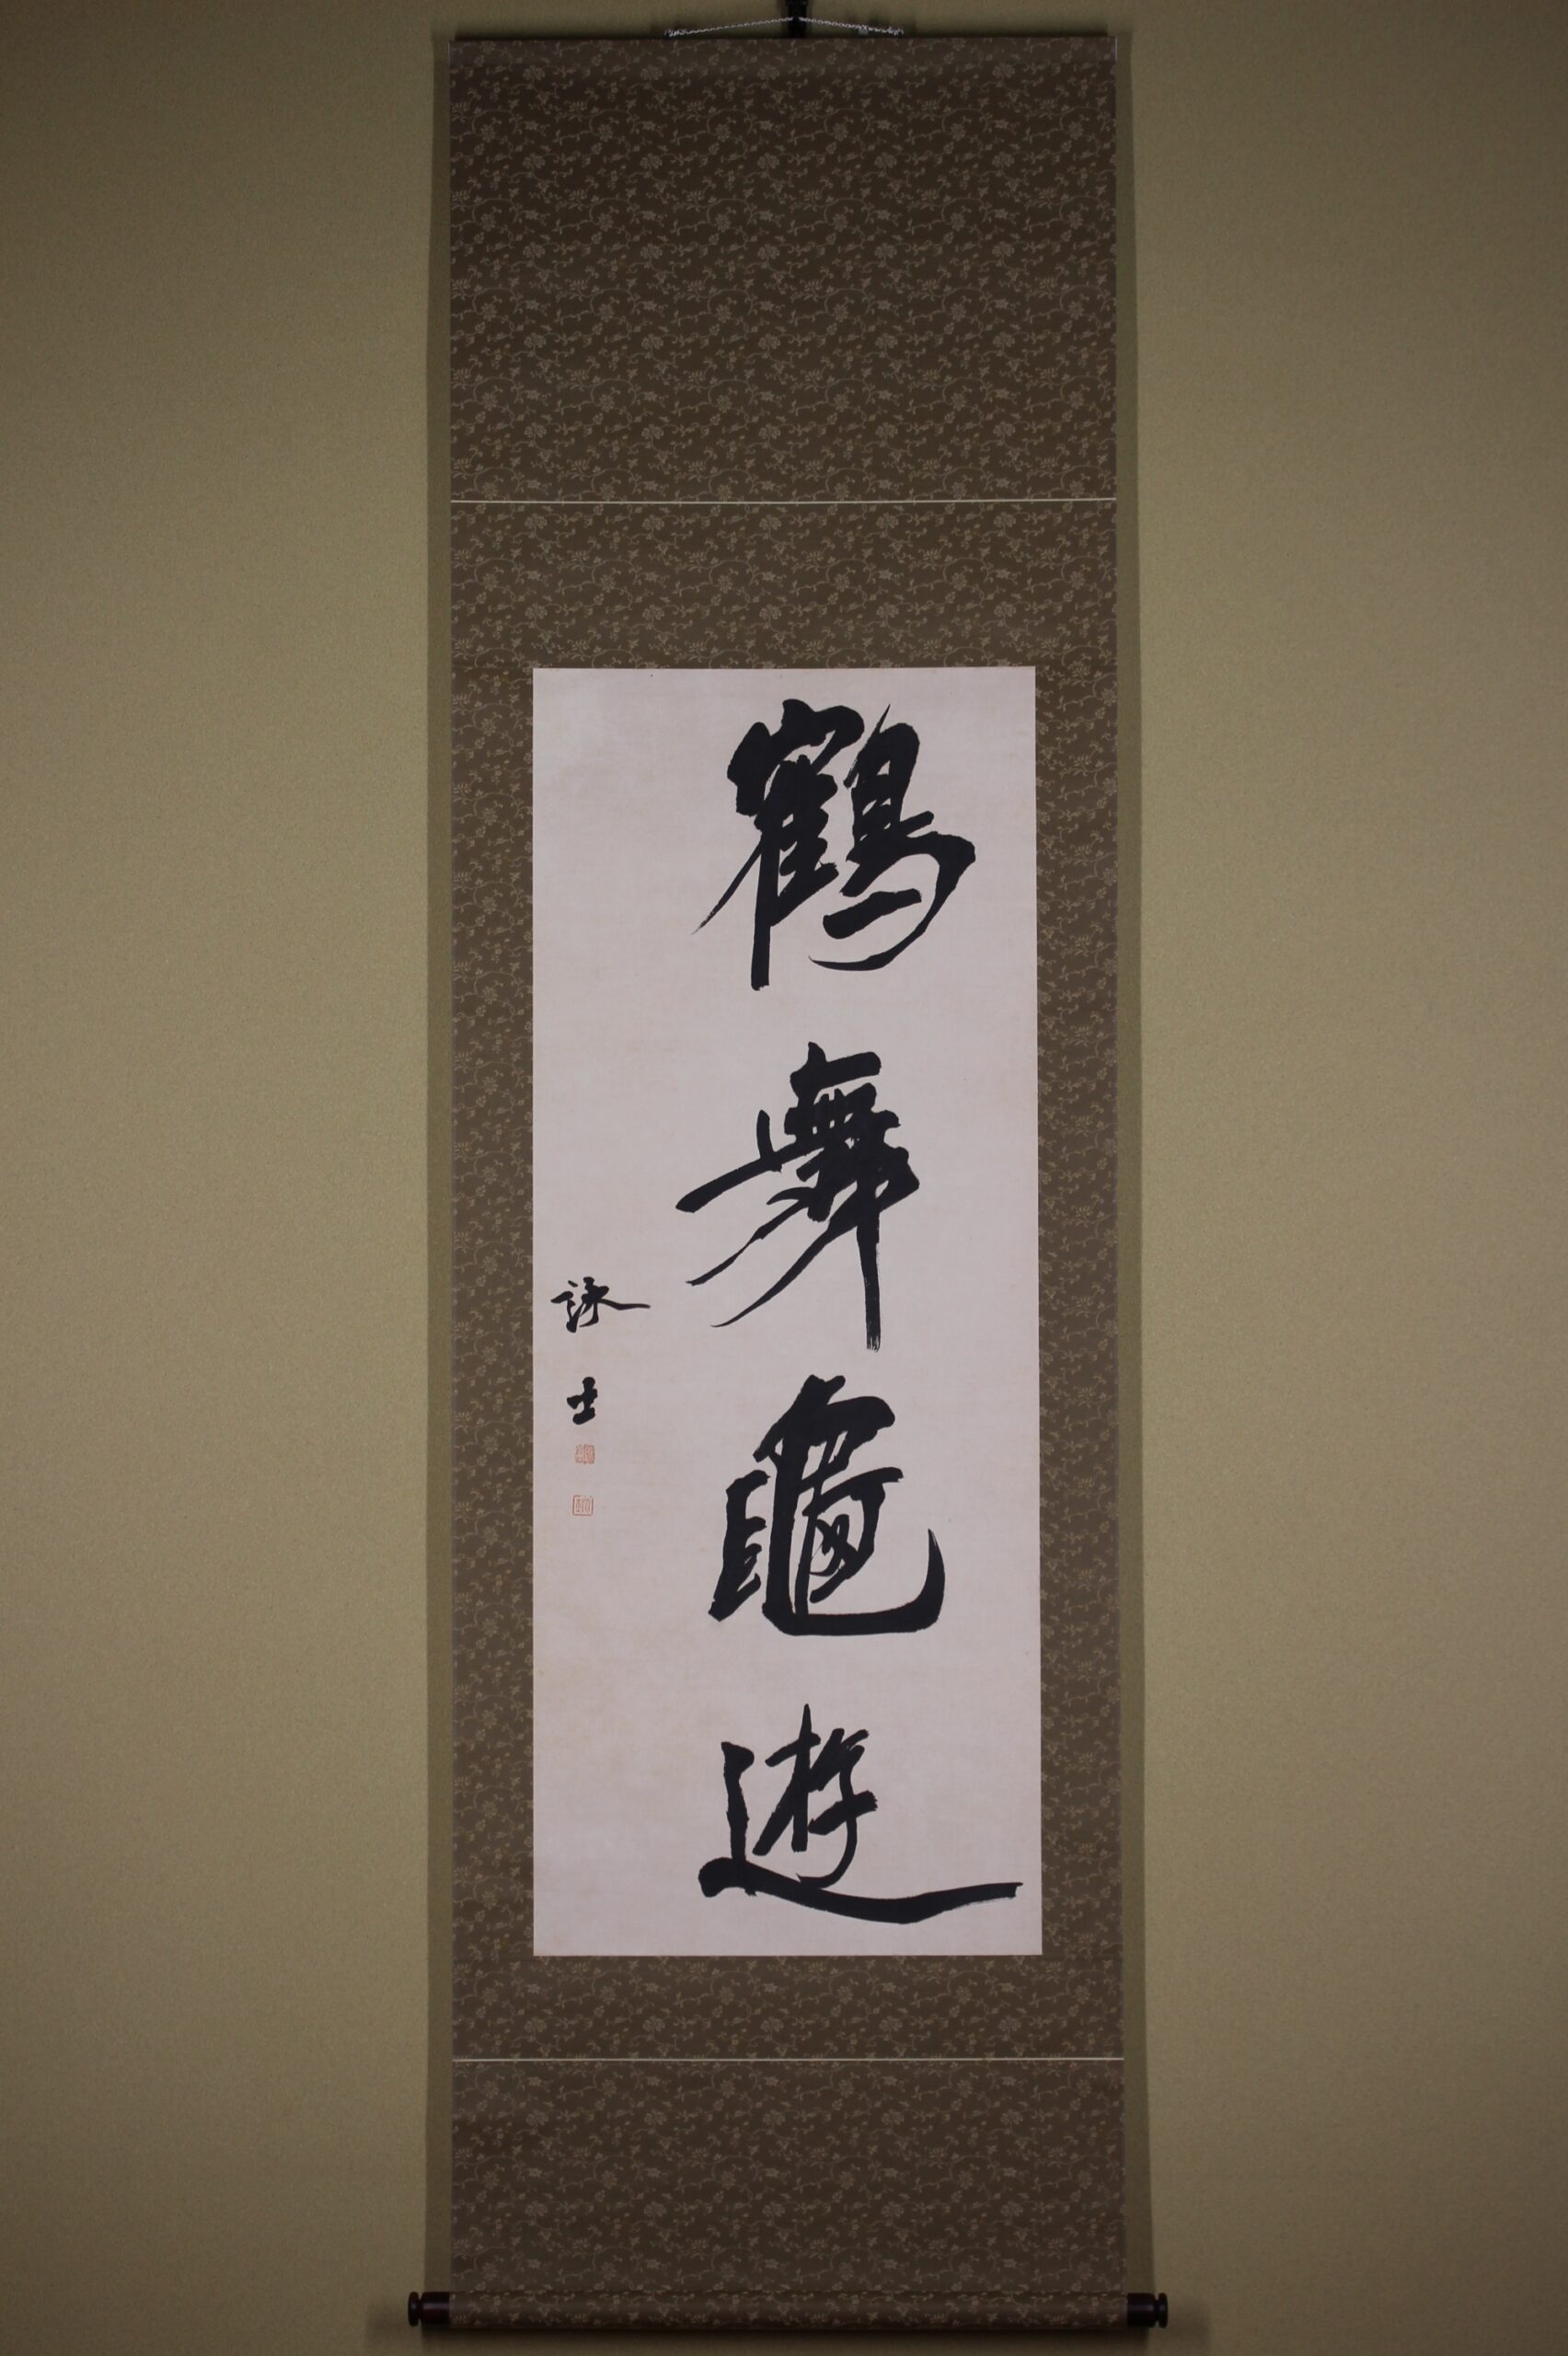 鶴舞龜遊
詠士